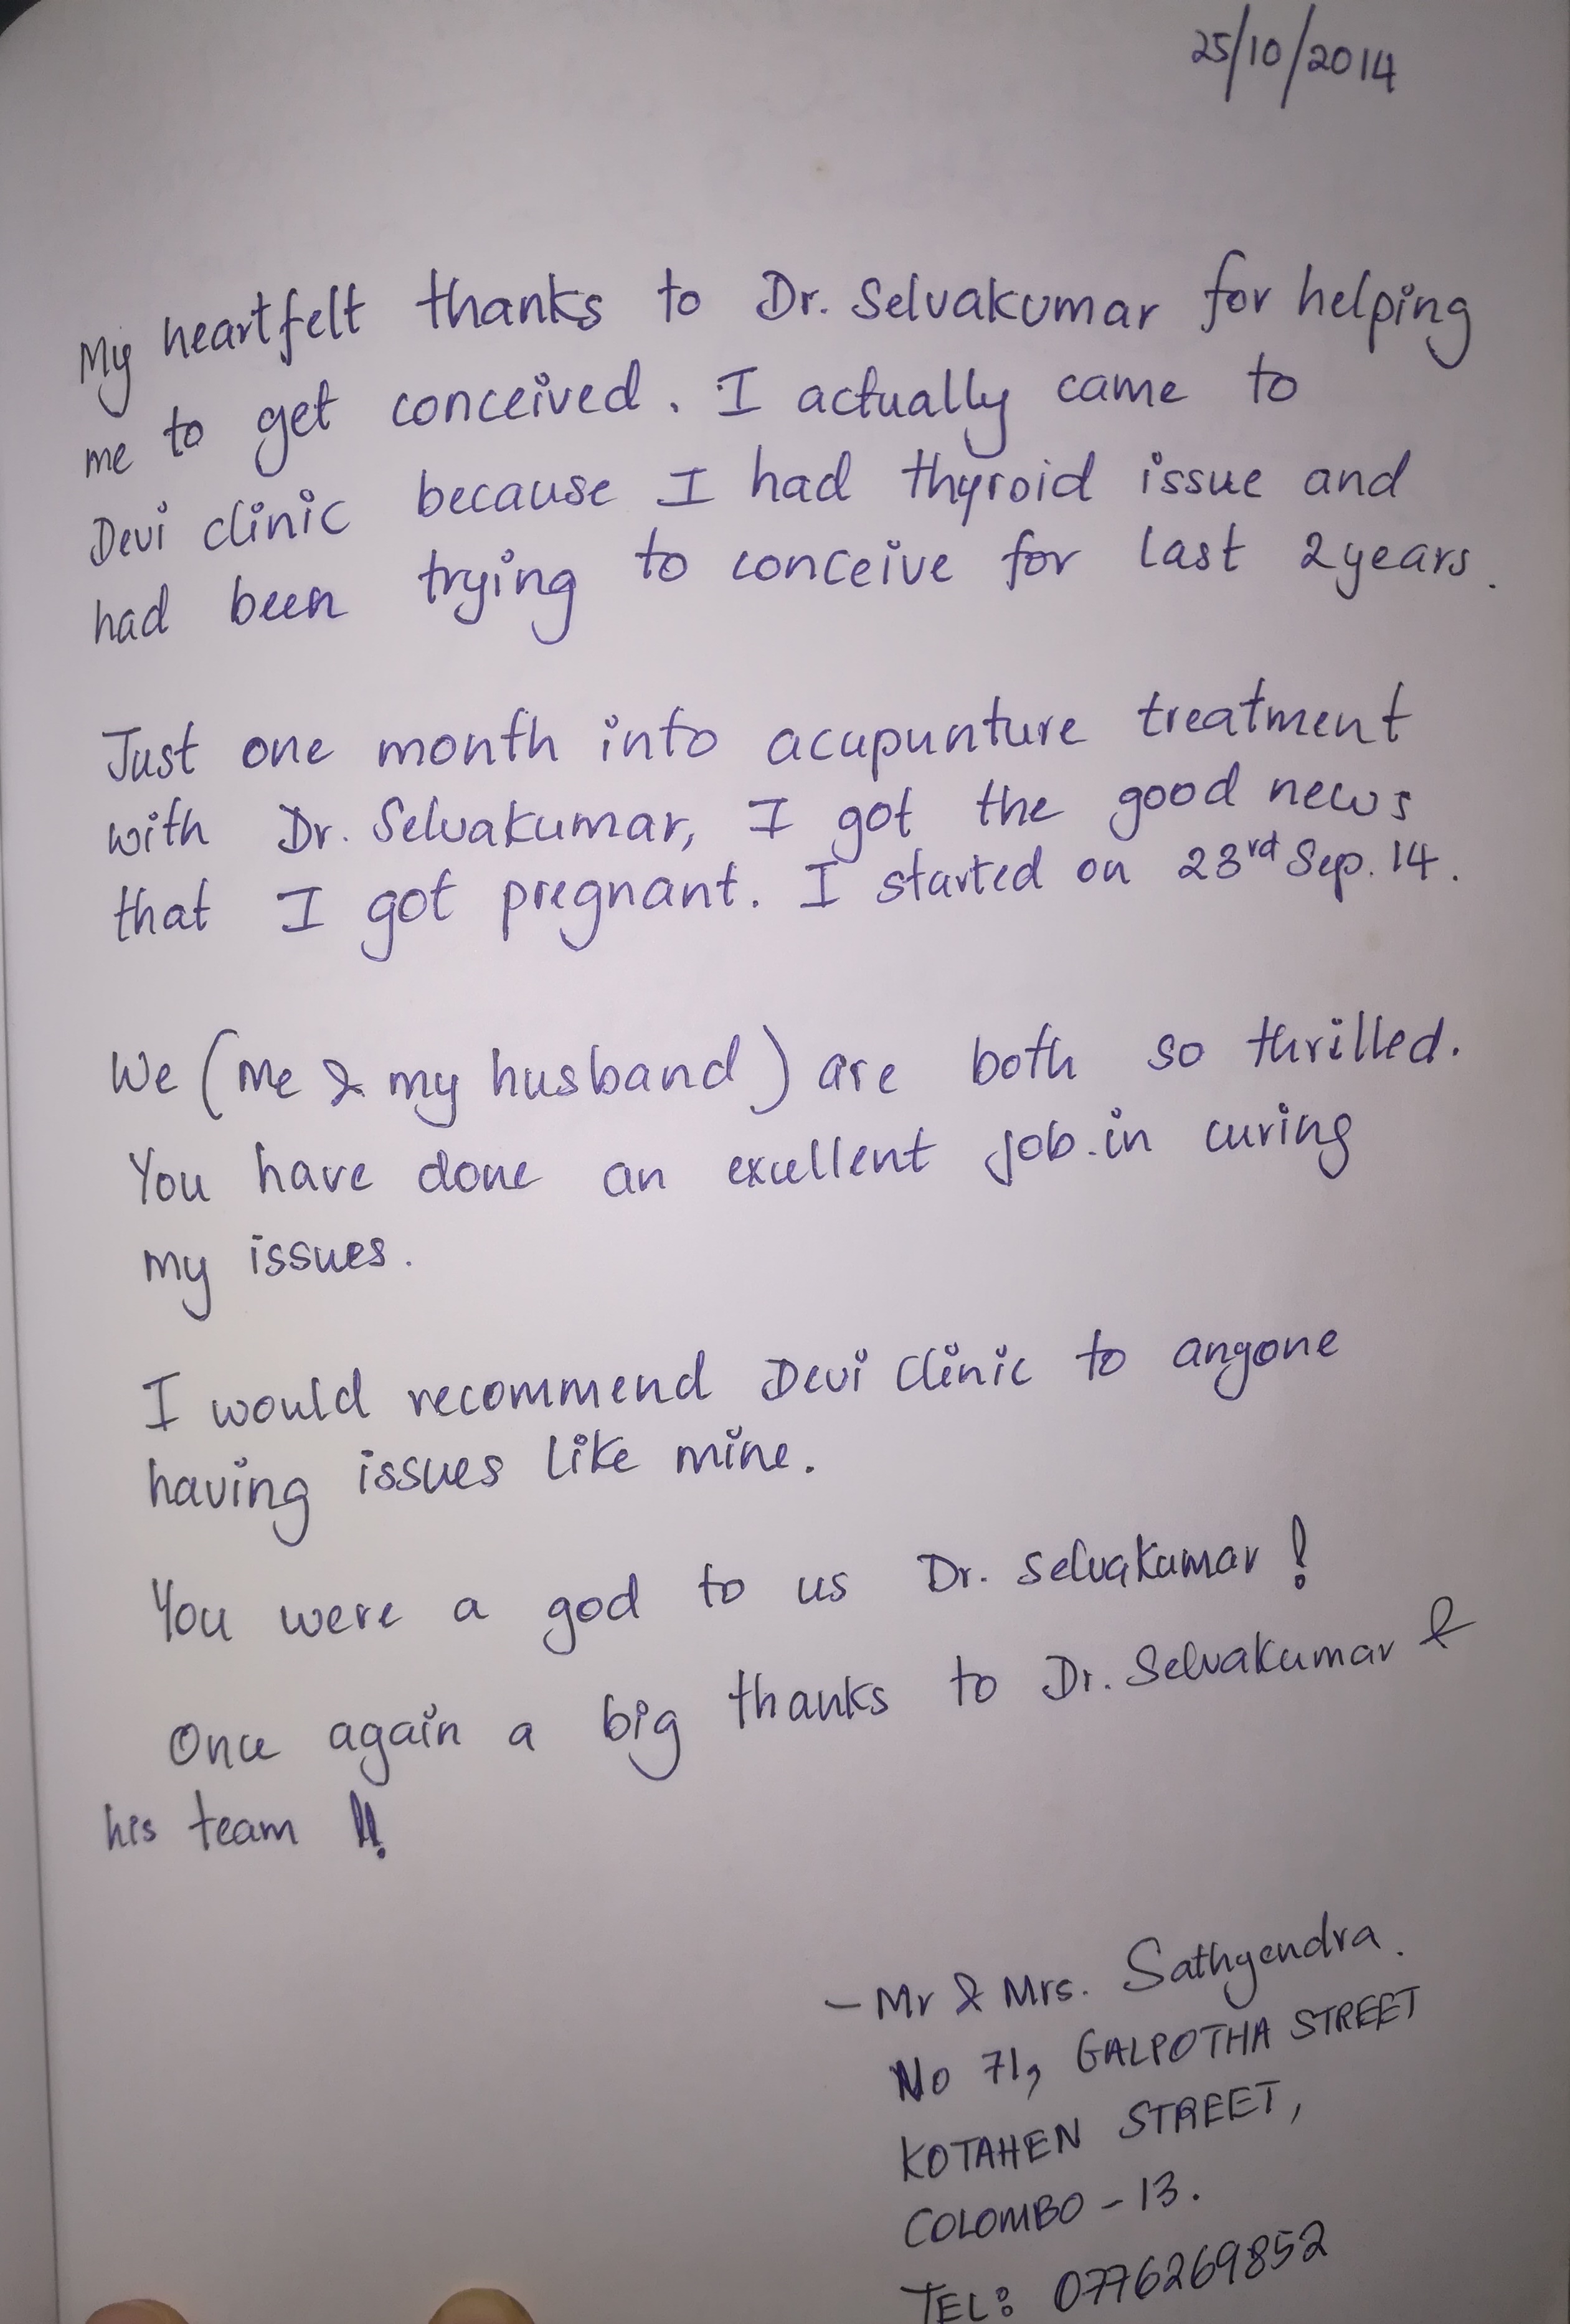 25/10/2014
My heartfelt thanks to Dr. Selvakumar for helping
me to get conceived. I actually came to
Devi clinic because I had thyroid issue and
had been trying to conceive for last 2 years.
Just one month into acupunture treatment
with Dr. Selvakumar, I got the good news
that I got pregnant. I started on 23rd Sep. 14.
We (Me & my husband) are both so thrilled.
You have done an excellent job in curing
my issues.
I would recommend Devi Clinic to anyone
having issues like mine.
You were a god to us Dr. Selvakumar!
Once again a big thanks to Dr. Selvakumar &
his team !!
- Mr & Mrs. Sathyendra.
No 71, GALPOTHA STREET
KOTAHEN STREET,
COLOMBO - 13.
TEL: 0776269852